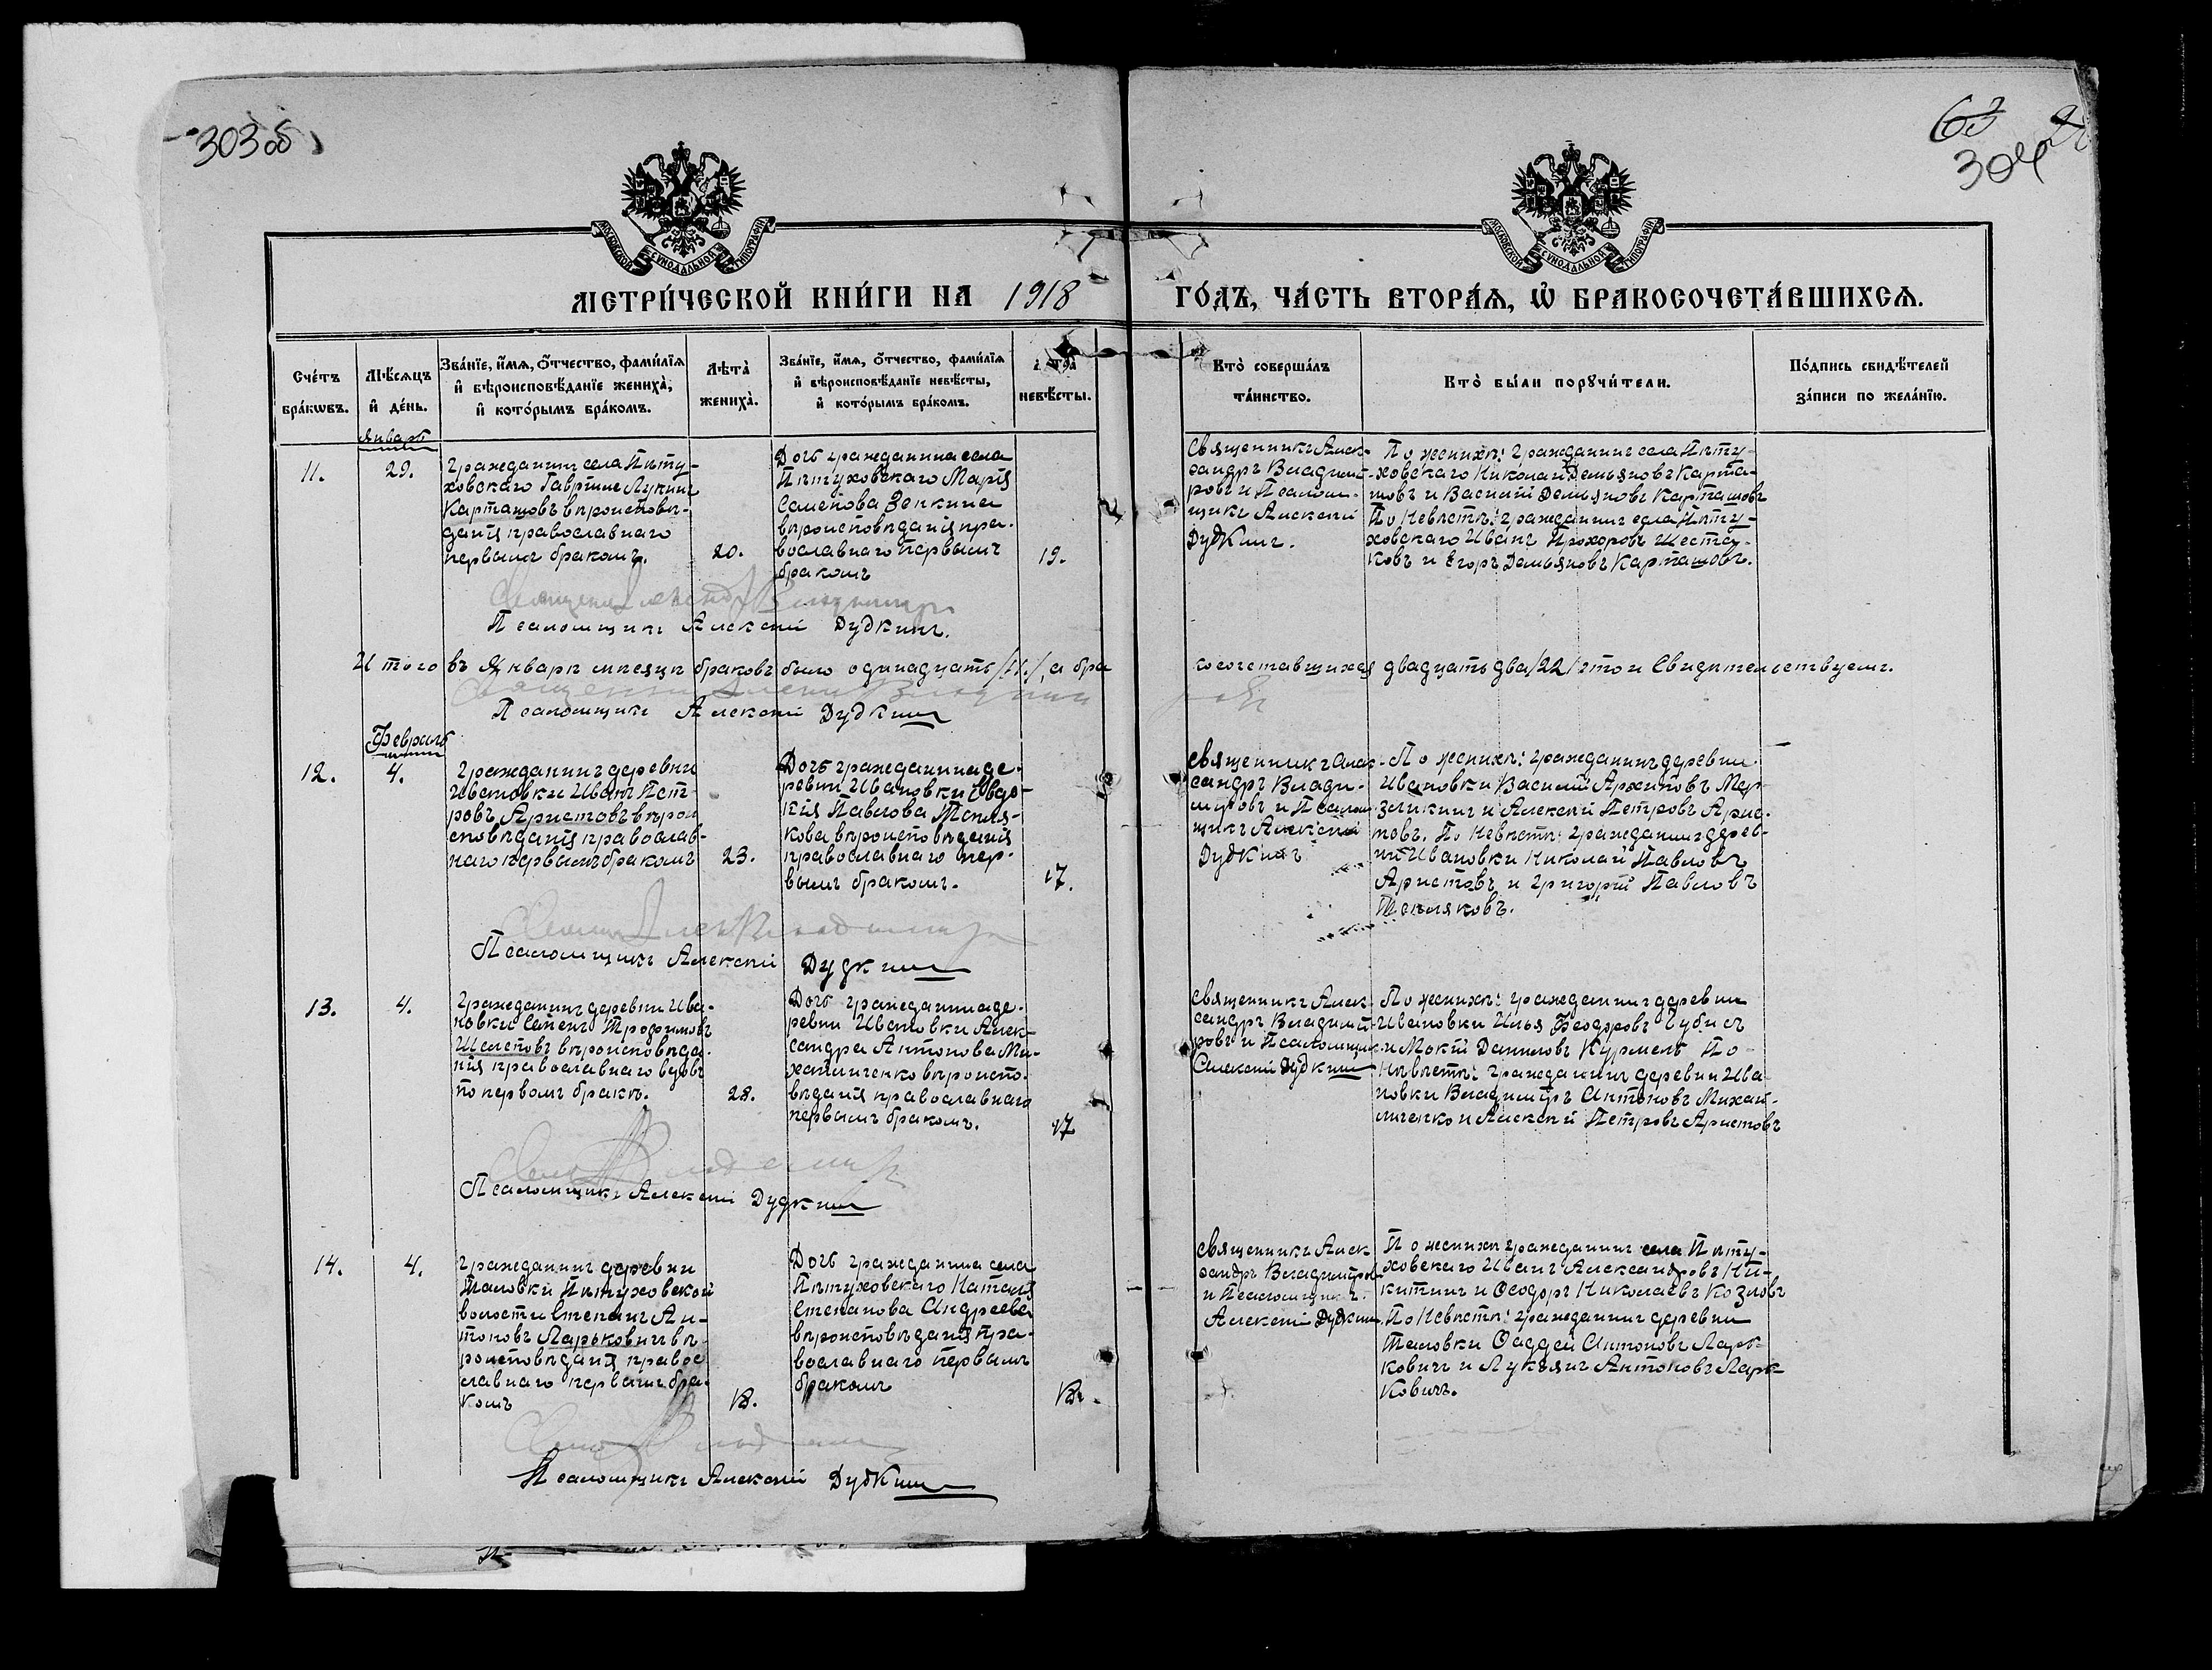 303 об
63
304
МОСКОВСКОЙ СѴНОДАЛЬНОЙ ТИПОГРАФІИ
МОСКОВСКОЙ СѴНОДАЛЬНОЙ ТИПОГРАФІИ
МЕТРИ́ЧЕСКОЙ КНИ́ГИ НА 1918
ГО́ДЪ, ЧА́СТЬ ВТОРА́Я, Ѡ БРАКОСОЧЕТА́ВШИХСЯ.
Сче́тъ
бра́кѡвъ.
Мѣ́сяцъ
и де́нь.
Зва́нїе, и́мя, ѻ́тчество, фами́лїя
и вѣроисповѣ́данїе жениха̀,
и кото́рымъ бра́комъ.
Лѣта̀
жениха̀.
Зва́нїе, и́мя, ѻ́тчество, фами́лїя
и вѣроисповѣ́данїе невѣ́сты,
и кото́рымъ бра́комъ.
невѣ́сты.
Кто̀ соверша́лъ
та́инство.
Кто̀ бы́ли порꙋчи́тели.
По́дпись свидѣ́телей
за́писи по жела́нїю.
Январь
11.
29.
Гражданинъ села Пѣту-
ховскаго Гаврiилъ Лукинъ
Карташовъ вѣроисповѣ-
данiя православнаго
первымъ бракомъ.
20.
Дочь гражданина села
Пѣтуховскаго Марiя
Семенова Зенкина
вѣроисповѣданiя пра-
вославнаго первымъ
бракомъ
19.
Священникъ Алек-
сандръ Владимi-
ровъ и Псалом-
щикъ Алексѣй
Дудкинъ.
По женихѣ: Гражданинъ села Пѣту-
ховскаго Николай Демьяновъ Карта-
шовъ и Василiй Демьяновъ Карташовъ
По Невѣстѣ: гражданинъ села Пѣту-
ховскаго Иванъ Прохоровъ Шеста-
ковъ и Егоръ Демьяновъ Карташовъ.
Псаломщикъ Алексѣй Дудкинъ.
Итого въ Январѣ мѣсяцѣ браковъ было одинадцать /11./, а бра
косочетавшихся двадцать два /22/ что и Свидѣтельствуемъ.
Псаломщикъ Алексѣй Дудкинъ
Февраль
12.
4.
Гражданинъ деревни
Ивановки Иванъ Пет-
ровъ Аристовъ вѣрои
сповѣданiя православ-
наго первымъ бракомъ
23.
Дочь гражданина де-
ревни Ивановки Евдо-
кiя Павлова Тепля-
кова вѣроисповѣданiя
православнаго пер-
вымъ бракомъ.
17.
Священникъ Алек-
сандръ Влади-
мiровъ и Псалом
щикъ Алексѣй
Дудкинъ
По женихѣ: гражданинъ деревни
Ивановки Василiй Архиповъ Мер-
зликинъ и Алексѣй Петровъ Арис-
товъ. По Невѣстѣ: гражданинъ дерев-
ни Ивановки Николай Павловъ
Аристовъ и Григорiй Павловъ
Тепляковъ.
Псаломщикъ Алексѣй Дудкинъ
13.
4.
Гражданинъ деревни Ива-
новки Семенъ Трофимовъ
Шелеповъ вѣроисповѣда-
нiя православнаго вдовъ
по первомъ бракѣ.
28.
Дочь гражданина де-
ревни Ивановки Алек-
сандра Антонова Ми-
хайличенко вѣроиспо-
вѣданiя православнаго
первымъ бракомъ.
17
Священникъ Алек-
сандръ Владимi-
ровъ и Псаломщик
Алексѣй Дудкинъ
По женихѣ: гражданинъ деревни
Ивановки Илья Феодоровъ Губисъ
и Мокiй Даниловъ Курмель По
Невѣстѣ: гражданинъ деревни Ива
новки Владимiръ Антоновъ Михай-
личенко и Алексѣй Петровъ Аристовъ
Псаломщикъ Алексѣй Дудкинъ
14.
4.
Гражданинъ деревни
Таловки Пѣтуховской
волости Степанъ Ан-
тоновъ Ларьковичъ вѣ-
роисповѣданiя правос
лавнаго первымъ бра-
комъ
18.
Дочь гражданина села
Пѣтуховскаго Наталiя
Степанова Андреева
вѣроисповѣданiя пра-
вославнаго первымъ
бракомъ
18.
Священникъ Алек
сандръ Владимiров
и Псаломщикъ
Алексѣй Дудкинъ.
По женихѣ гражданинъ села Пѣту-
ховскаго Иванъ Александровъ Ни-
китинъ и Ѳеодоръ Николаевъ Козловъ
По Невѣстѣ: гражданинъ деревни
Таловки Ѳаддей Антоновъ Ларь-
ковичъ и Лукьянъ Антоновъ Ларь-
ковичъ.
Псаломщикъ Алексѣй Дудкинъ